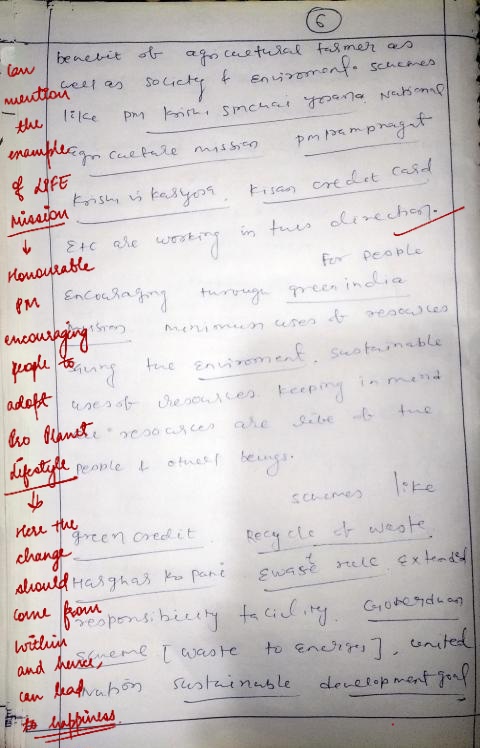 6
benefit of agricultural farmer as
well as society & Enviroment. schemes
like PM Krishi Sinchai yojana. National
agriculture mission PM parmpragat
Krishi vikasyoja. Kisan credit card
Etc are working in this direction.
For people
Encouraging through green india
mission minimum uses of resources
the Enviroment. sustainable
uses of resources. Keeping in mind
resources are life of the
people & other beings.
schemes like
green credit. Recycle of waste
Harghar ko pani Ewaste rule Extended
responsibility facility. Goberdhan
Scheme [waste to energies], united
Nation sustainable development goal
Can
mention
the
example
of LIFE
Mission
↓
Honourable
PM
encouraging
people to
adopt
Pro Planet
Lifestyle
↓
Here the
change
should
come from
within
and hence,
can lead
to happiness.